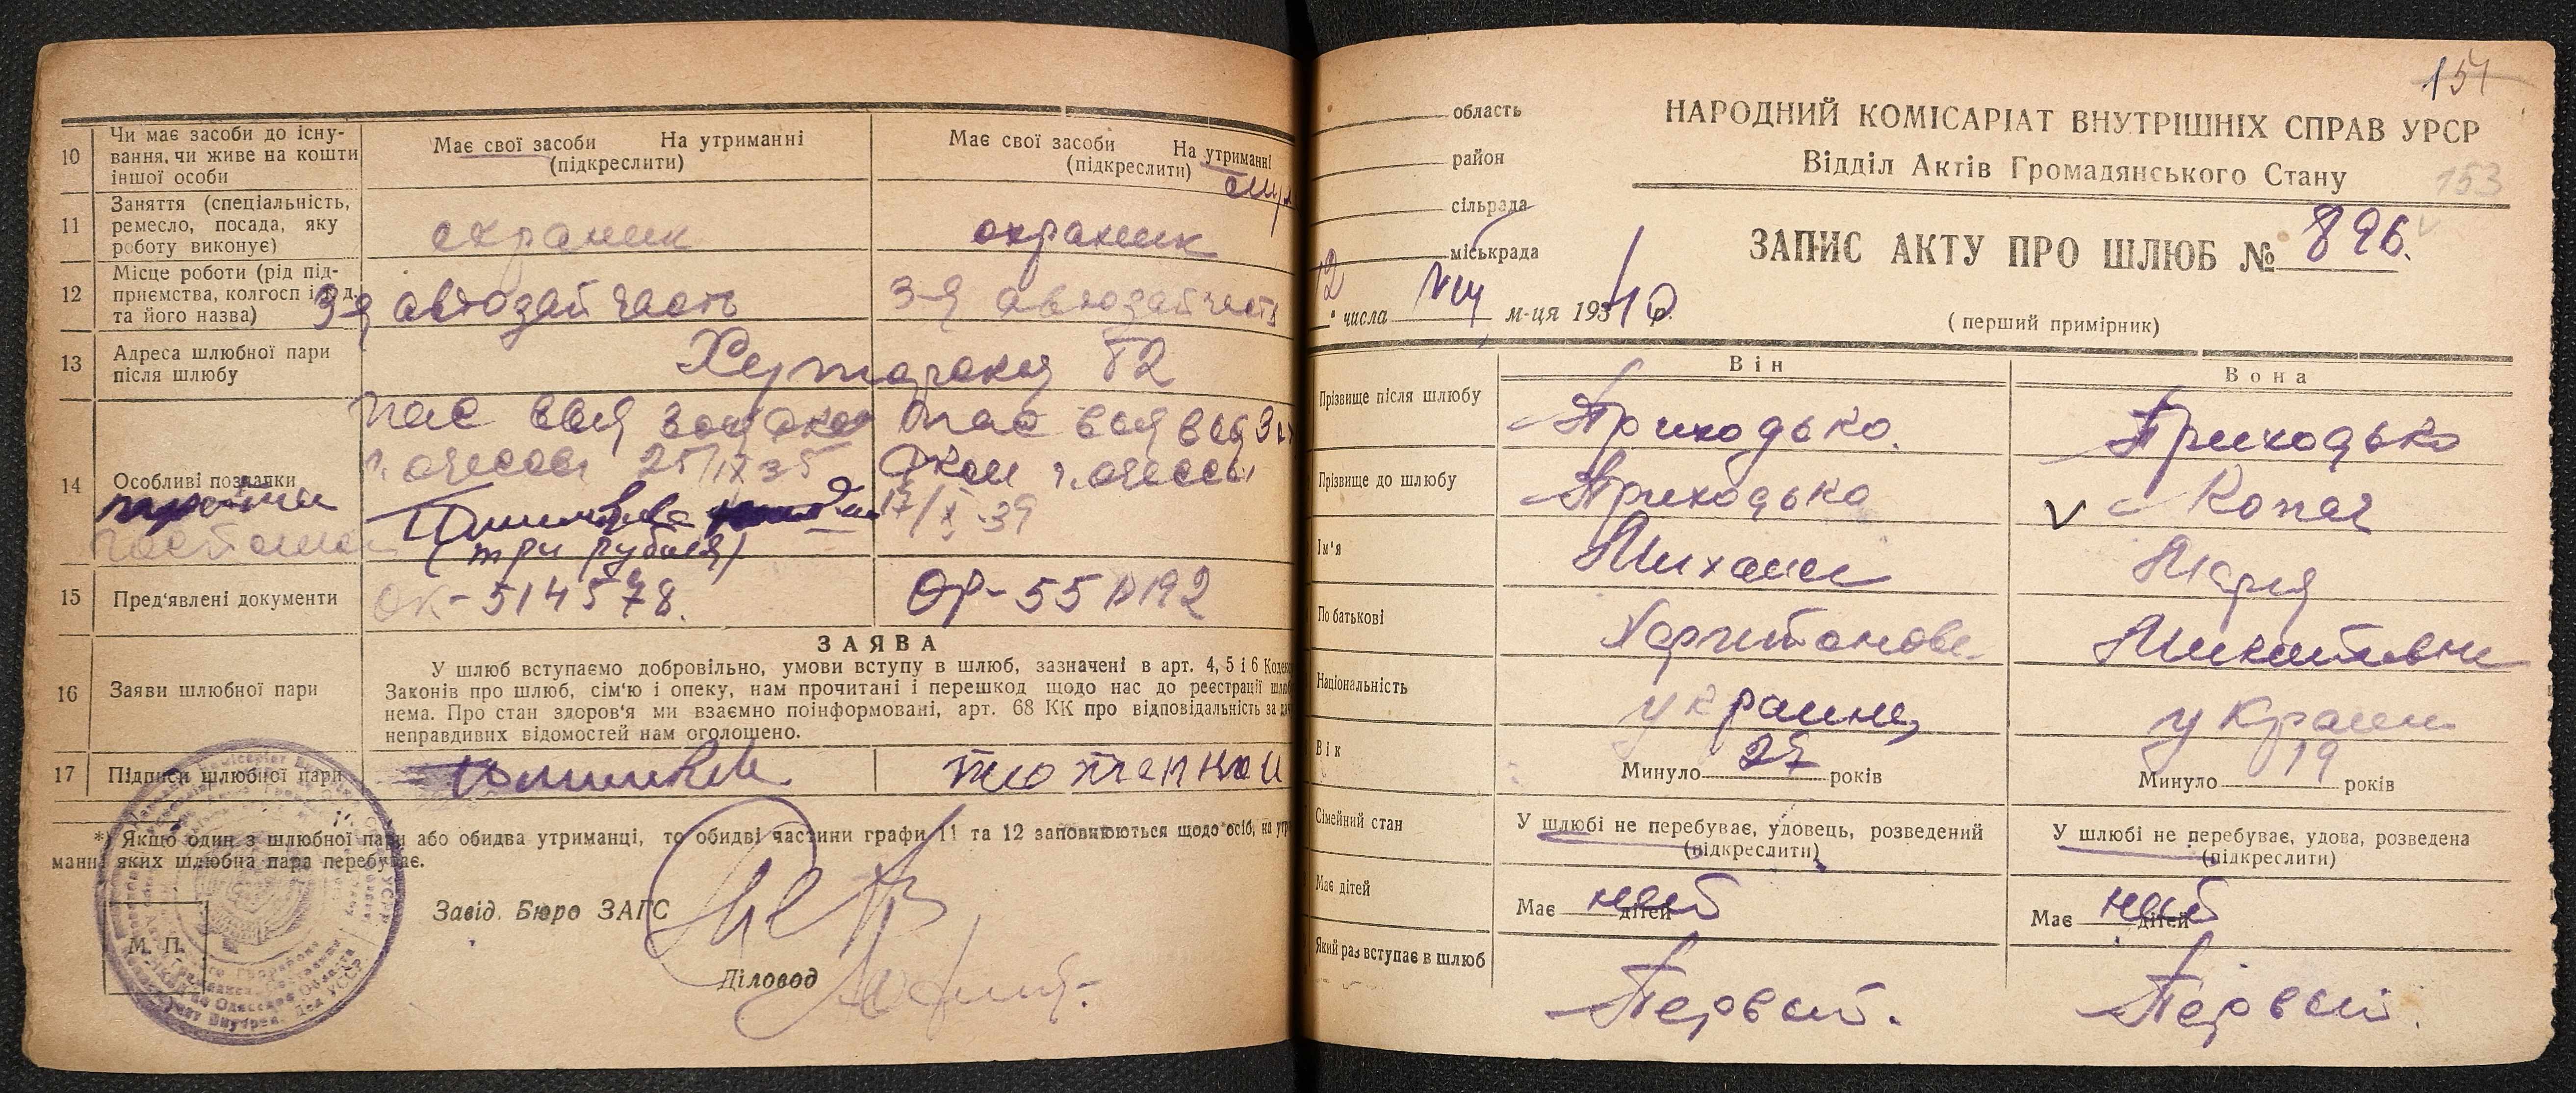 10
Чи має засоби до існу-
вання, чи живе на кошти
іншої особи
Має свої засоби На утриманні
(підкреслити)
Має свої засоби На утриманні
(підкреслити)
11
Заняття (спеціальність,
ремесло, посада, яку
роботу виконує)
охраник
охраник
12
Місце роботи (рід під-
приємства, колгосп і т. д.
та його назва)
3-я
часть
3-я
13
Адреса шлюбної пари
після шлюбу
62
14
Особливі познапки
г. Одессы 25/IX 35
г. Одессы
17/X-39
(три рубля)
15
Пред'явлені документи
ОК-514578.
16
Заяви шлюбної пари
ЗАЯВА
У шлюб вступаємо добровільно, умови вступу в шлюб, зазначені в арт. 4, 5 і 6 Кодексу
Законів про шлюб, сім'ю і опеку, нам прочитані і перешкод щодо нас до реєстрації
нема. Про стан здоров'я ми взаємно поінформовані, арт. 68 КК про відповідальність за
неправдивих відомостей нам оголошено.
17
Підписи шлюбної пари
*) Якщо один з шлюбної пари або обидва утриманці, то обидві частини графи 11 та 12 заповнюються щодо осіб, на
яких шлюбна пара перебуває.
Завід. Бюро ЗАГС
М. П.
Діловод
154
область
район
сільрада
міськрада
НАРОДНИЙ КОМІСАРІАТ ВНУТРІШНІХ СПРАВ УРСР
Відділ Актів Громадянського Стану
153
ЗАПИС АКТУ ПРО ШЛЮБ № 896.
числа VIII м-ця 1940 р.
(перший примірник)
Він
Вона
Прізвище після шлюбу
Приходько.
Приходько
Прізвище до шлюбу
Приходько
Копач
Ім'я
Михаил
Мария
По батькові
Харитонов.
Никитовна
Національність
украинец
украин
Вік
Минуло 27 років
Минуло 19 років
Сімейний стан
У шлюбі не перебуває, удовець, розведений
(підкреслити)
У шлюбі не перебуває, удова, розведена
(підкреслити)
Має дітей
Має нет дітей
Має нет дітей
Який раз вступає в шлюб
Первый.
Первый.